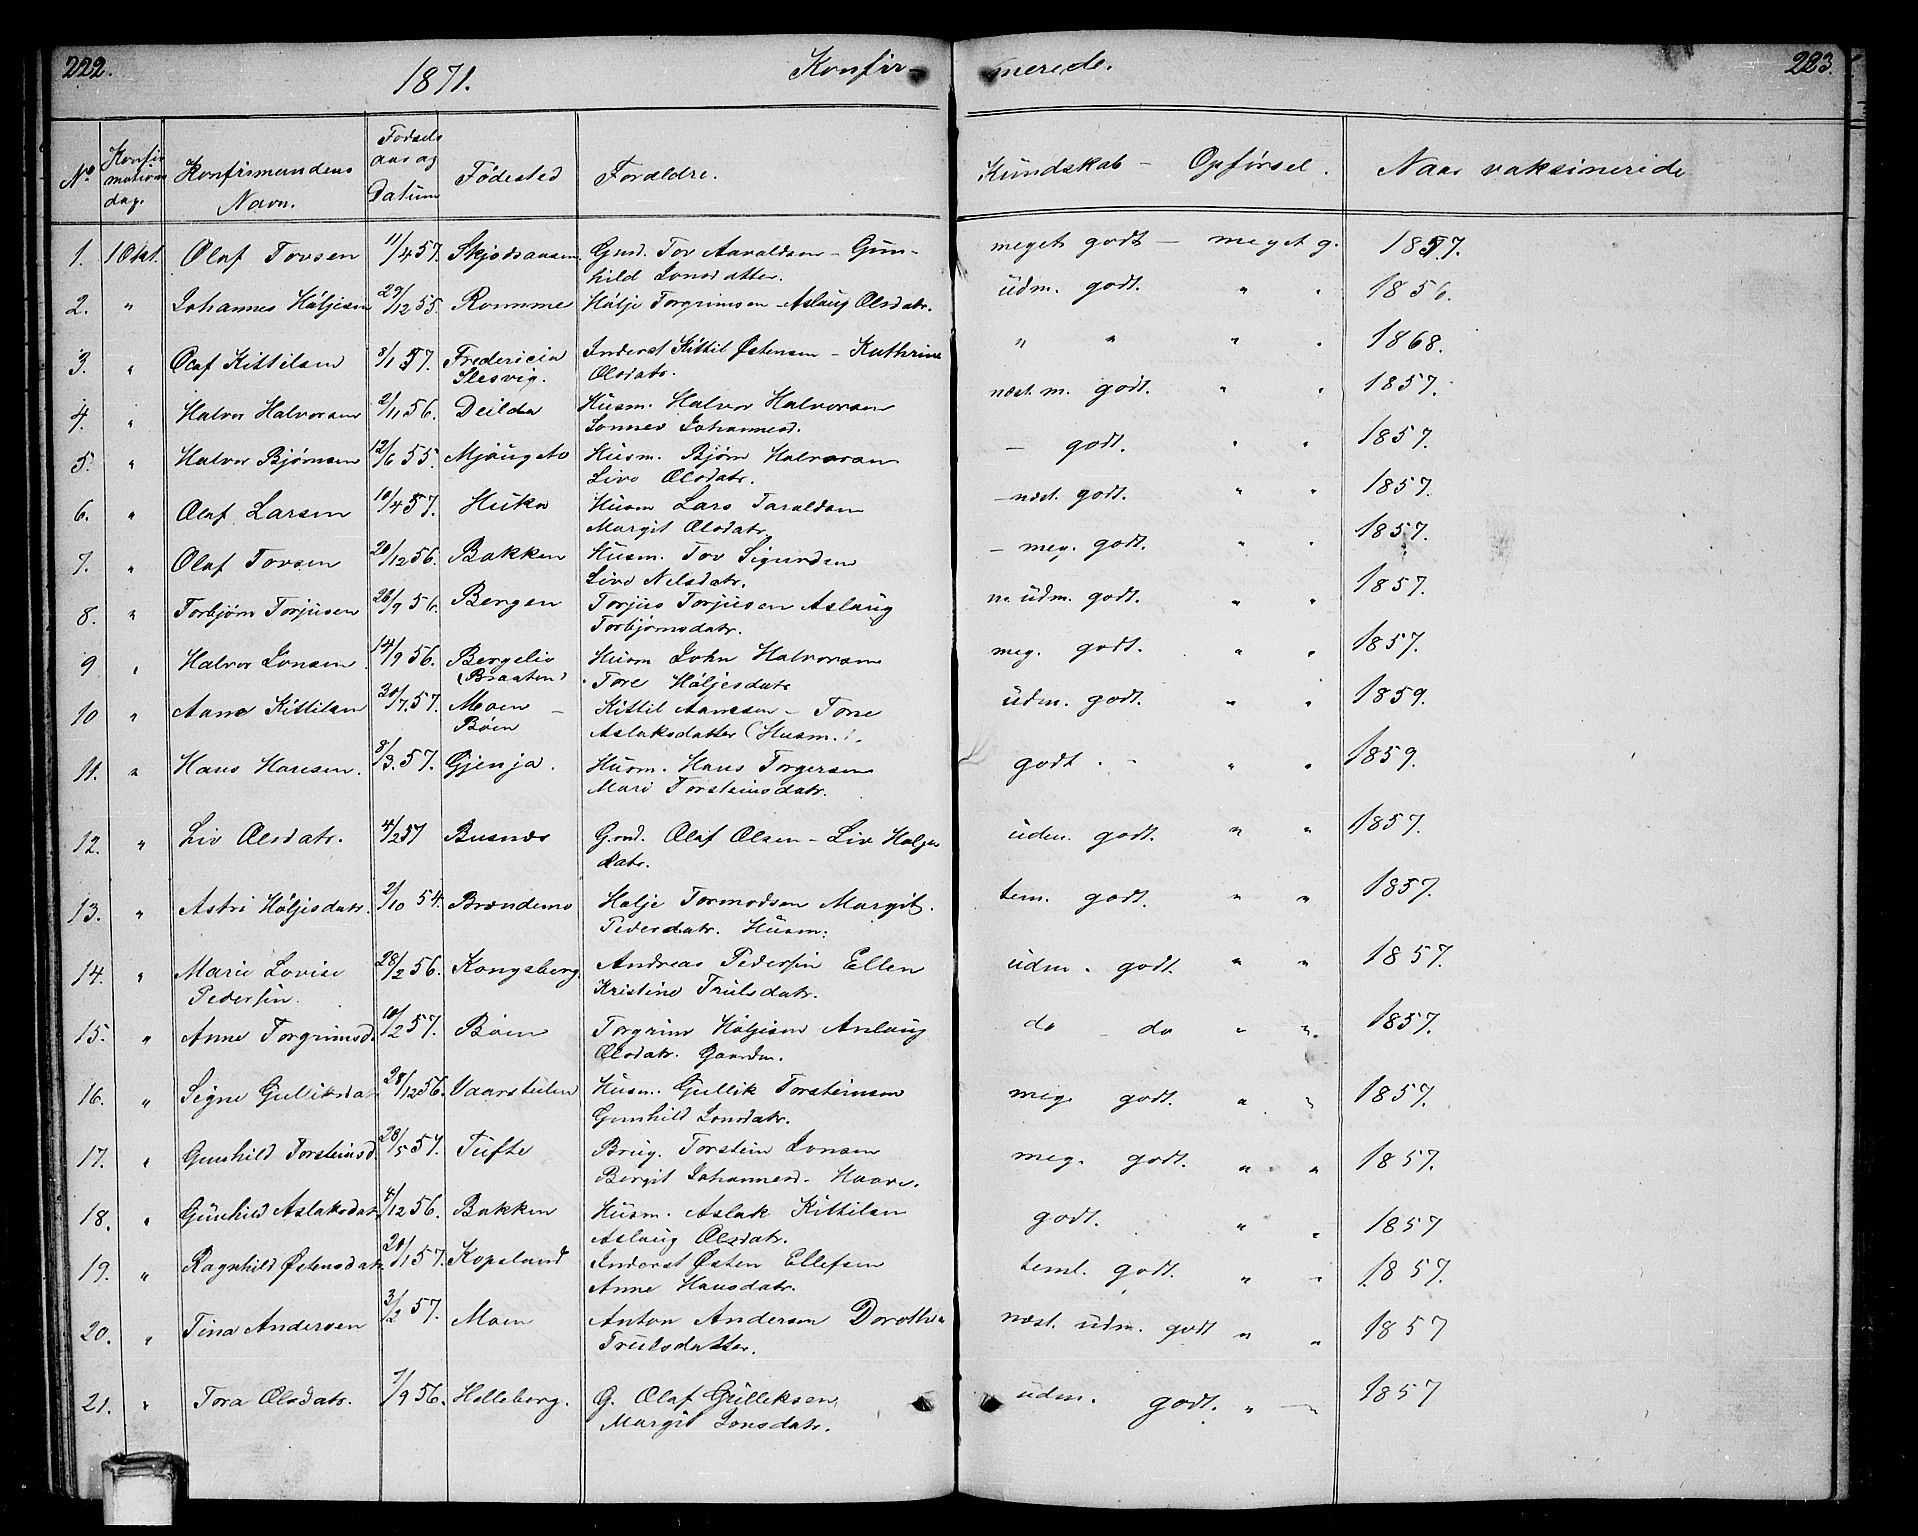 222. 1871. Konfir- merede. 223.
No Konfirmations dag. Konfirmandens Navn. Fødsels aar og Datum Fødested Forældre. Kundskab - Opførsel. Naar vaksineride
1. 1 Okt. Olaf Tovsen 11/4 57. Gmd. Tov Aavaldsen - Gun- meget godt - meget g. 1857.
hild Jonsdatter.
2. " Johannes Høljesen 29/12 55. Romme Hølje Torgrimsen - Aslaug Olsdatr. udm. godt. " " 1856.
3. " Olaf Kittilsen 3/1 57. Fredericia Inderst Kittil Østensen - Kathrine " " " " 1868.
Slesvig. Olsdatr.
4. " Halvor Halvorsen 2/11 56. Deilda Husm. Halvor Halvorsen næst. m. godt. " " 1857.
Johannesd.
5. " Halvor Bjørnsen 12/6 55. Husm. Bjørn Halvorsen - godt. " " 1857.
Livo Olsdatr.
6. " Olaf Larsen 10/4 57. Huka Husm Lars Taraldsen -næst. godt. " " 1857.
Margit Olsdatr.
7. " Olaf Tovsen 20/12 56. Bakken Husm. Tov Sigurdsen - meg. godt. " " 1857.
Livo Nelsdatr.
8. " Torbjørn Torjusen 26/9 56. Bergen Torjus Torjusen Aslaug udm. godt. " " 1857.
Torbjørnsdatr.
9 " Halvor Jonsen 14/9 56. Bergeliv Husm John Halvorsen meg. godt. " " 1857.
(Braaten) Tore Høljesdatr
10 " Aane Kittilsen 30/7 57. Moen - Kittil Aanesen - Tone udm. godt. " " 1859.
Bøen Aslaksdatter (Husm.).
11. " Hans Hansen. 8/3 57. Gjenja. Husm. Hans Torgersen godt. - " " 1859.
Mari Torsteinsdatr.
12. " Liv Olsdatr. 4/2 57 Busnæs Gmd. Olaf Olsen - Liv Høljes udm. godt. " " 1857.
datr.
13. " Astri Høljesdatr. 2/10 54. Brændemo Hølje Tormodsen Margit. tem. godt. " " 1857.
Pedersdatr. Husm.
14. " Marie Lovise 28/2 56. Kongsberg. Andreas Pedersen Ellen udm. godt. " " 1857.
Pedersen. Kristine Trulsdatr.
15. " Anne Torgrimsd. 10/2 57. Bøen Torgrim Høljesen Aslaug do do " " 1857.
Olsdatr. Gaardm.
16. " Signe Gulliksdatr. 28/12 56. Vaarstulen Husm. Gullik Torsteinsen meg. godt. " " 1857.
Gunhild Jonsdatr.
17. " Gunhild Torsteinsd. 28/5 57. Tufte Brug. Torstein Jonsen meg. godt. " " 1857.
Bergit Johannesd.
18. " Gunhild Aslaksdatr. 4/12 56. Bakken Husm. Aslak Kittilsen godt. " " 1857
Aslaug Olsdatr.
19. " Ragnhild Østensdatr. 20/1 57. Kopsland Inderst Østen Ellefsen teml. godt. " " 1857.
Anne Hansdatr.
20. " Tina Andersen 3/2 57. Moen Anton Andersen Dorothea næst. udm. godt " " 1857
Trulsdatter.
21. " Tora Olsdatr. 7/9 56. Helleberg. G. Olaf Gulleksen, udm. godt. " " 1857
Margit Jonsdatr.